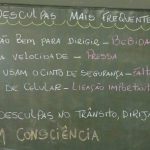 DESCULPAS MAIS FREQUENTE
ÃO BEM PARA DIRIGIR - BEBIDA
A VELOCIDADE - PRESSA
USAM O CINTO DE SEGURANÇA - FALT
DE CELULAR - LIGAÇÃO
DESCULPAS NO TRÂNSITO, DIRIJA
M CONSCIÊNCIA